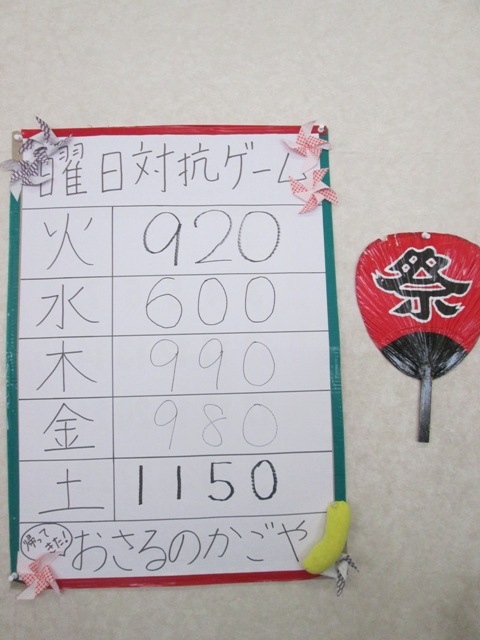 曜日対抗ゲーム
火 920
水 600
木 990
金 980
土 1150
帰って
きた!
おさるのかごや
祭